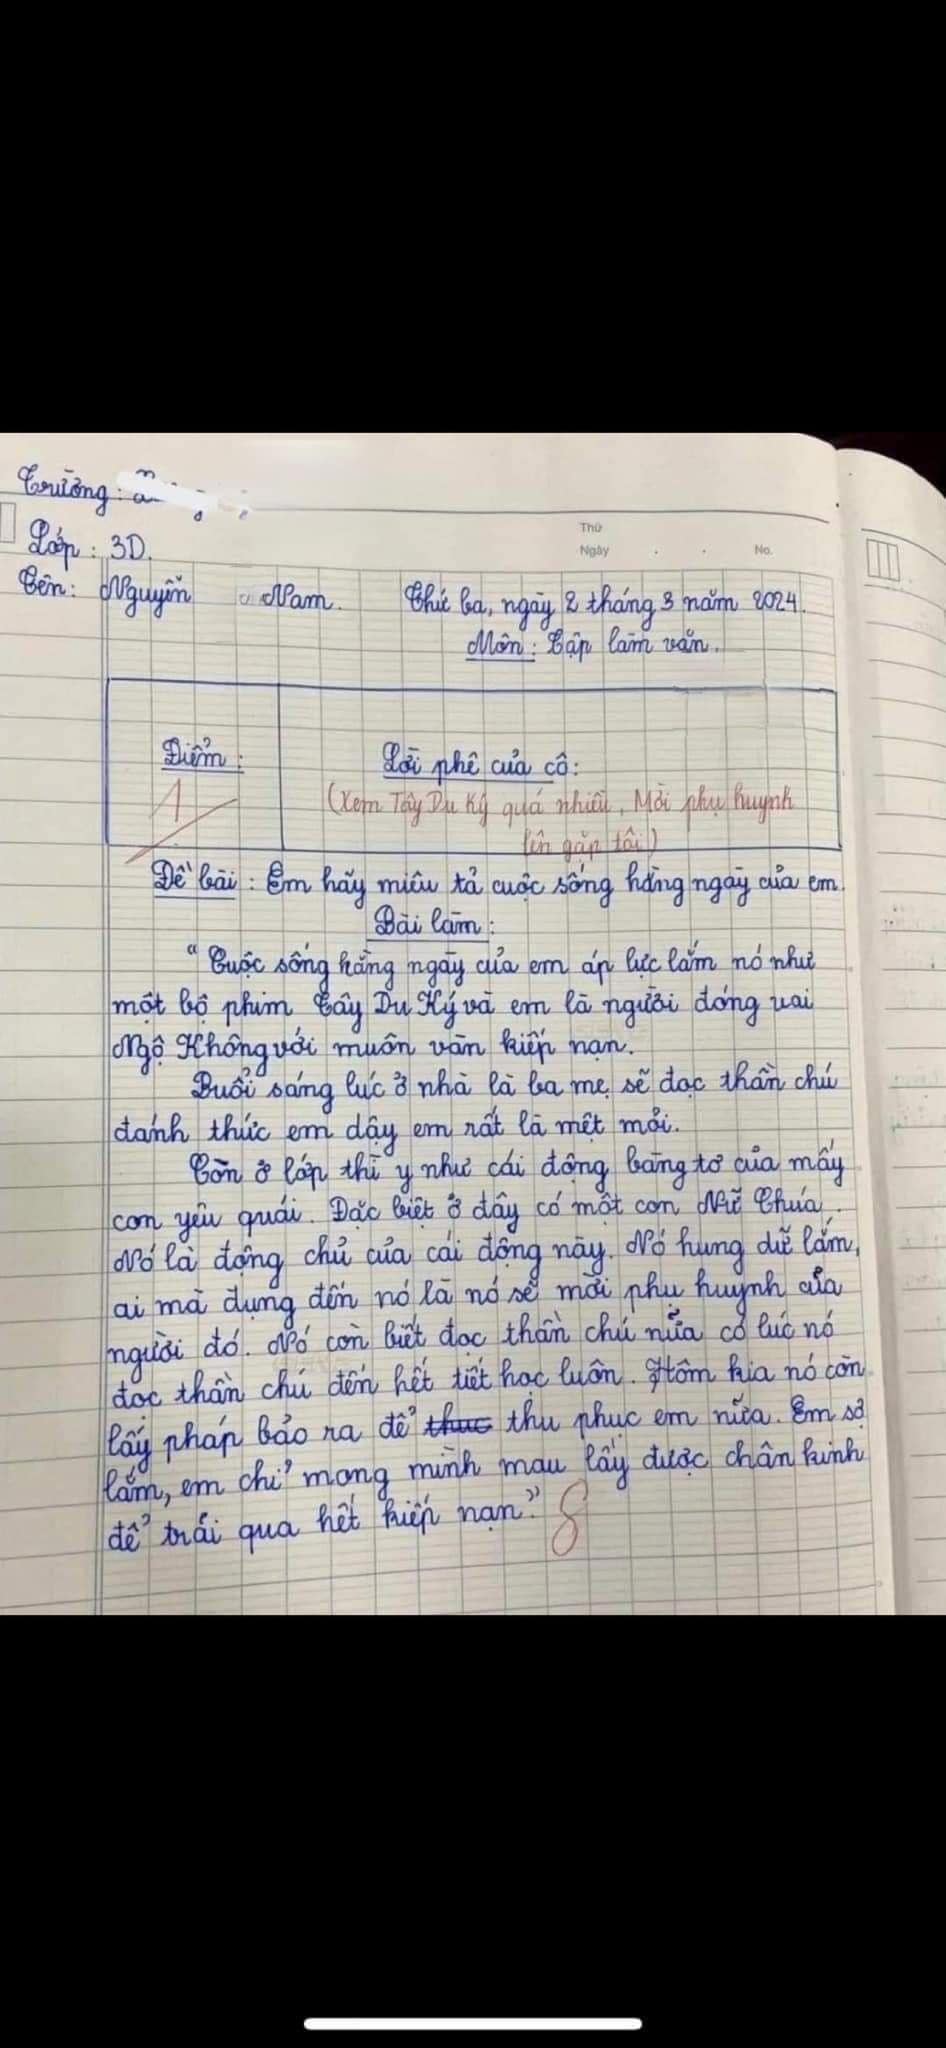 Trường:
Thứ
Ngày . . No.
Lớp: 3D.
Tên: Nguyễn Nam. Thứ ba, ngày 2 tháng 3 năm 2024.
Môn: Tập làm văn.
Điểm: Lời phê của cô:
1 (Xem Tây Du Ký quá nhiều, Mời phụ huynh
lên gặp tôi)
Đề bài: Em hãy miêu tả cuộc sống hằng ngày của em.
Bài làm:
"Cuộc sống hằng ngày của em áp lực lắm nó như
một bộ phim Tây Du Ký và em là người đóng vai
Ngộ Không với muôn vàn kiếp nạn.
Buổi sáng lúc ở nhà là ba mẹ sẽ đọc thần chú
đánh thức em dậy em rất là mệt mỏi.
Còn ở lớp thì y như cái động bàng tơ của mấy
con yêu quái. Đặc biệt ở đây có một con Nữ Chúa.
Nó là động chủ của cái động này. Nó hung dữ lắm,
ai mà đụng đến nó là nó sẽ mời phụ huynh của
người đó. Nó còn biết đọc thần chú nữa có lúc nó
đọc thần chú đến hết tiết học luôn. Hôm kia nó còn
lấy pháp bảo ra để thuc thu phục em nữa. Em sợ
lắm, em chỉ mong mình mau lấy được chân kinh
để trải qua hết kiếp nạn."